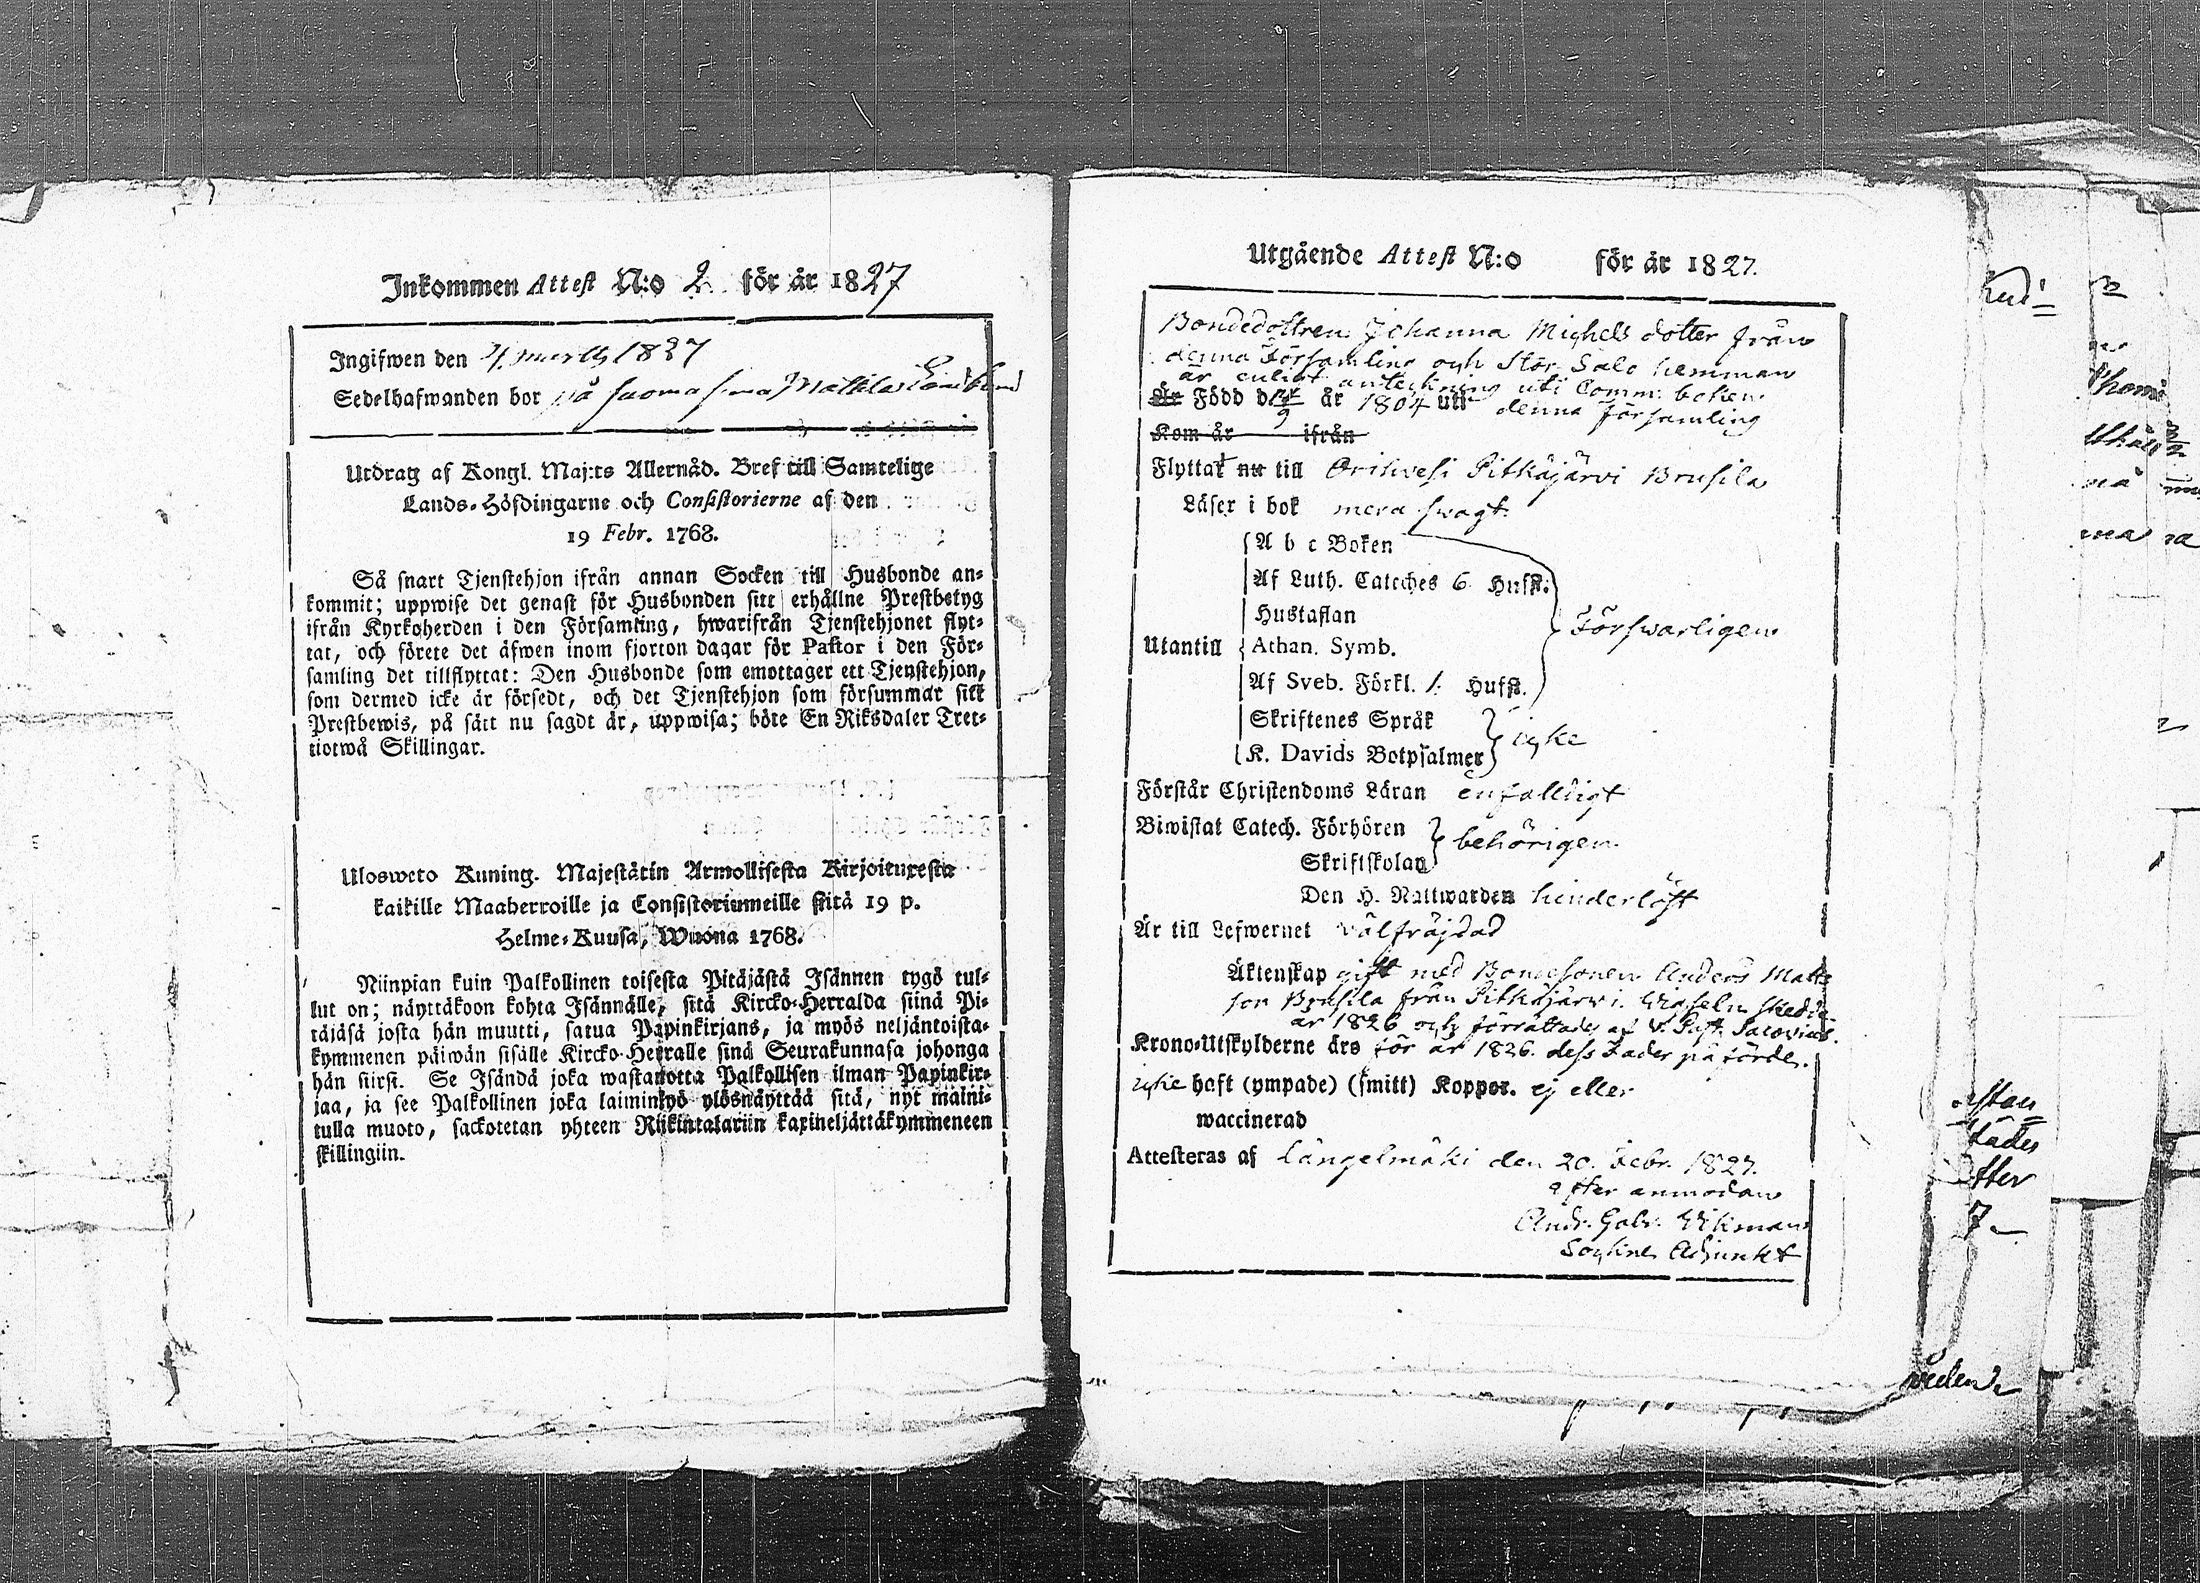 Inkommen Attest N:o 2 för år 1827
Ingifwen den 4 martz 1827
Sedelhafwanden bor på
Utdrag af Kongl. Maj:ts Allernåd. Bref till Samtelige
Lands-Höfdingarne och Consistorierne af den
19 Febr. 1768.
Så snart Tjenstehjon ifrån annan Socken till Husbonde an-
kommit; uppwise det genast för Husbonden sitt erhållne Prestbetyg
ifrån Kyrkoherden i den Församling, hwarifrån Tjenstehjonet flyt-
tat, och förete det äfwen inom fjorton dagar för Pastor i den För-
samling det tillflyttat: Den Husbonde som emottager ett Tjenstehjon,
som dermed icke är försedt, och det Tjenstehjon som försummar sitt
Prestbewis, på sätt nu sagdt är, uppwisa; böte En Riksdaler Tret-
tiotwå Skillingar.
Ulosweto Kuning. Majestätin Armollisesta Kirjoituxesta
kaikille Maaherroille ja Consistoriumeille siitä 19 p.
Helme-Kuusa, Wuona 1768.
Niinpian kuin Palkollinen toisesta Pitäjästä Isännen tygö tul-
lut on; näyttäkoon kohta Isännälle, sitä Kircko-Herralda siinä Pi-
täjäsä josta hän muutti, satua Papinkirjans, ja myös neljäntoista-
kymmenen päiwän sisälle Kircko-Herralle sinä Seurakunnasa johonga
hän siirsi. Se Isändä joka wastanotta Palkollisen ilman Papinkir-
jaa, ja see Palkollinen joka laiminlyö ylösnäyttää sitä, nyt maini-
tulla muoto, sackotetan yhteen Riikintalariin kaxineljättäkymmeneen
skillingiin.
Utgående Attest N:o för år 1827.
Bondedottren Johanna Michels dotter från
denna Församling och Stor Salo hemman
är enligt anteckning uti Comm. boken
Är Född d 14/9 år 1804 uti denna församling
Kom år ifrån
Flyttat nu till Orihvesi Pitkäjärvi Brusila
Läser i bok mera swagt
A b c Boken
Af Luth. Cateches 6 Hufst:
Hustaflan
Utantill Athan. Symb. Förswarligen
Af Sveb. Förkl. 1. Hufst.
Skriftenes Språk
K. Davids Botpsalmer icke
Förstår Christendoms Läran enfalligt
Biwistat Catech. Förhören
Skriftskolan behörigen
Den H. Nattwarden hinderlöst
Är till Lefwernet välfräjdad
Äktenskap gift med Bondesonen Anders Matts
son Brusila från Pitkäjärwi. Wigseln skedde
år 1826 och förrättades af V. Past.
Krono-Utskylderne äro för år 1826. dess Fader påförde.
icke haft (ympade) (smitt) Koppor. ej eller
waccinerad
Attesteras af Längelmäki den 20. Febr. 1827.
efter anmodan
Andr. Gabr. Wikman
Sockne Adjunkt